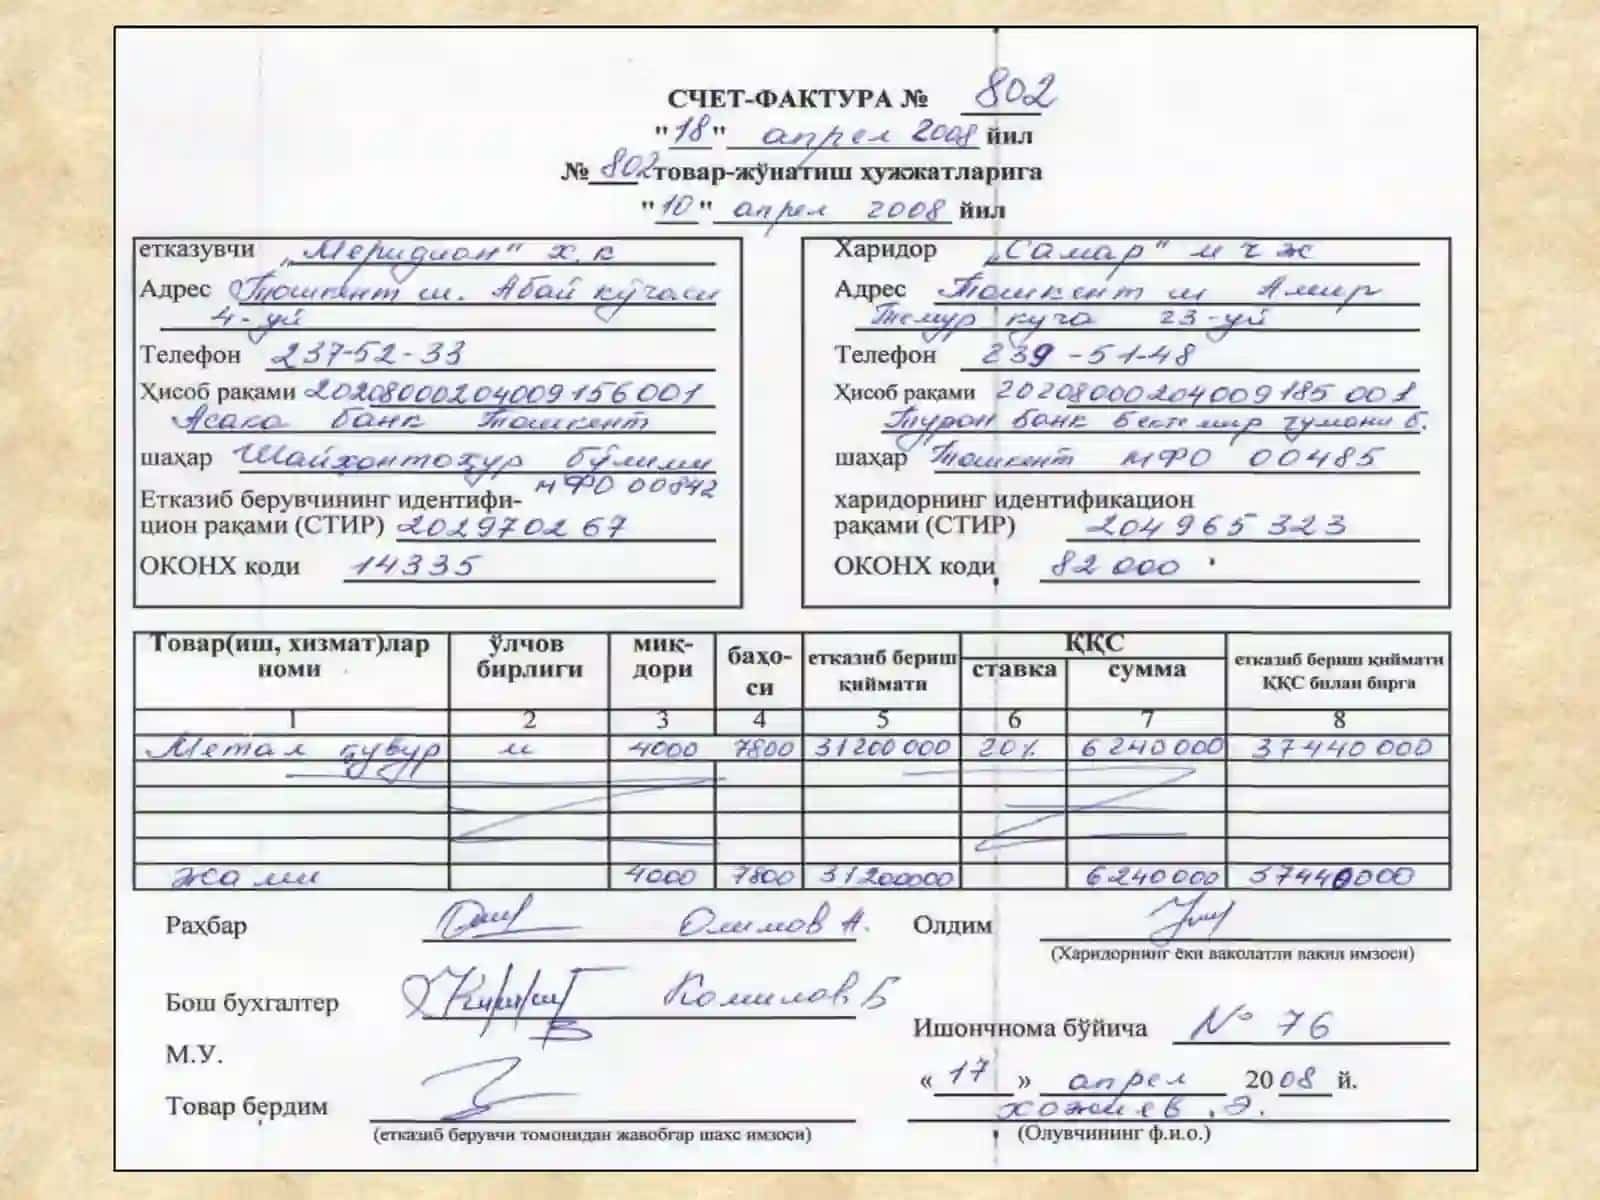 СЧЕТ-ФАКТУРА № 802
"18" апрел 2008 йил
№ 802 товар-жўнатиш ҳужжатларига
"10" апрел 2008 йил
етказувчи „Меридион" х.к
Адрес Тошкент ш. Абай кўчаси
4-уй
Телефон 237-52-33
Ҳисоб рақами 20208000204009156001
Асака банк Тошкент
шаҳар Шайхонтоҳур бўлими
МФО 00842
Етказиб берувчининг идентифи-
цион рақами (СТИР) 202970267
ОКОНХ коди 14335
Харидор „Самар" м ч ж
Адрес Тошкент ш Амир
Темур куча 23-уй
Телефон 239-51-48
Ҳисоб рақами 20208000204009185001
Турон банк Бектемир тумани б.
шаҳар Тошкент МФО 00485
харидорнинг идентификацион
рақами (СТИР) 204 965 323
ОКОНХ коди 82 000
Товар(иш, хизмат)лар номи ўлчов бирлиги миқ-дори баҳо-си етказиб бериш қиймати ҚҚС ставка сумма етказиб бериш қиймати ҚҚС билан бирга
1 2 3 4 5 6 7 8
Метал қувур м 4000 7800 31200 000 20% 6 240 000 37 440 000
Жами 4000 7800 31200000 6240000 37440000
Раҳбар Олимов А.
Олдим
(Харидорнинг ёки ваколатли вакил имзоси)
Бош бухгалтер Комилов Б
Ишончнома бўйича № 76
М.У.
« 17 » апрел 2008 й.
Товар бердим
хожиев .Э.
(етказиб берувчи томонидан жавобгар шахс имзоси)
(Олувчининг ф.и.о.)